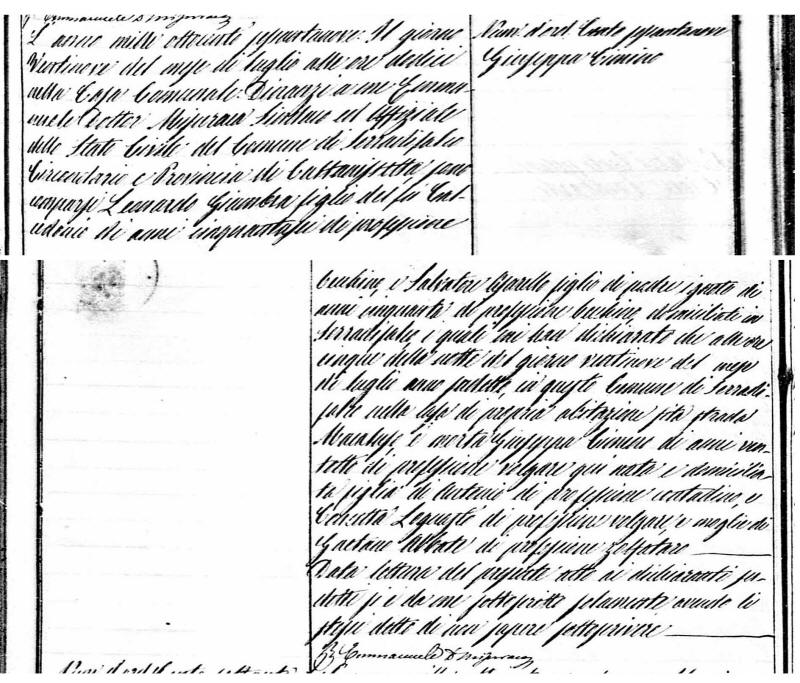 Emmanuele D Misuraca
L'anno mille ottocento sessantanove: Il giorno
Ventinove del mese di luglio alle ore dodici
nella Casa Comunale: Dinanzi a me Emma-
nuele Dottor Misuraca Sindaco ed Uffiziale
dello Stato Civile del Comune di Serradifalco
Circondario e Provincia di Caltanissetta sono
comparsi Leonardo Giumbra figlio del fu Cal-
cedonio di anni cinquantasei di professione
Num d'ord. Cento sessantanove
Giuseppa Cimino
becchino, e Salvatore figlio di padre ignoto di
anni cinquanta di professione becchino, domiciliati in
Serradifalco, i quali mi han dichiarato che alle ore
cinque della notte del giorno ventinove del mese
di luglio anno sudetto, in questo Comune di Serradi-
falco nella casa di propria abitazione sita strada
è morta Giuseppa Cimino di anni ven-
totto di professione volgare qui nata e domicilia-
ta figlia di Antonio di professione contadino, e
Concetta di professione volgare, e moglie di
Gaetano Abbate di professione zolfataro
Data lettura del presente atto ai dichiaranti su-
detti si è da me sottoscritto solamente avendo li
stessi detto di non sapere sottoscrivere
Emmanuele D Misuraca
Num d'ord Cento settanta